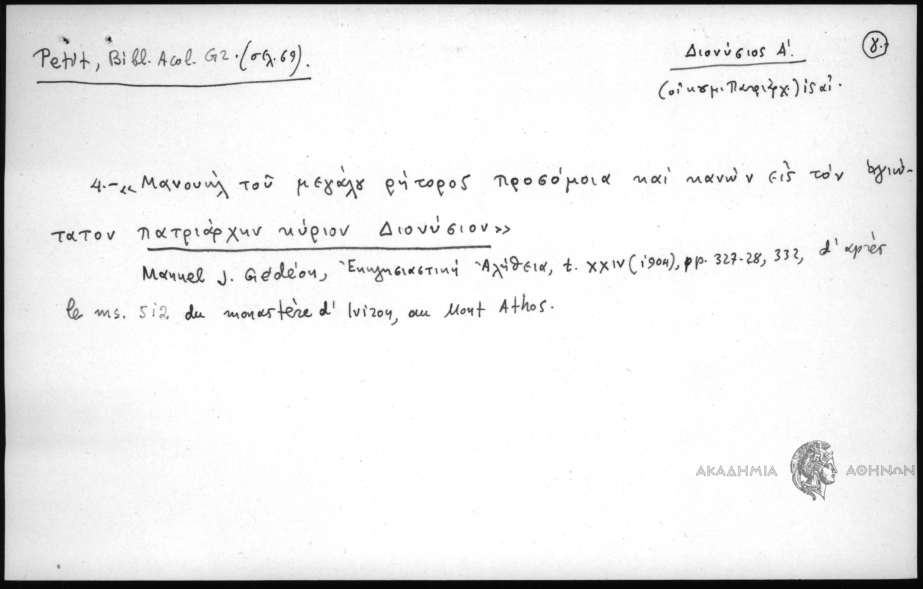 Petit, Bibl. Acol. G2. (σελ. 69).
Διονύσιος Α΄. γ.)
(οἰκουμ. Πατριάρχ.) ις αἰ.
4.- «Μανουὴλ τοῦ μεγάλου ρήτορος προσόμοια καὶ κανὼν εἰς τὸν ἁγιώ-
τατον πατριάρχην κύριον Διονύσιον»
Manuel J. Gédéon, Ἐκκλησιαστικὴ Ἀλήθεια, t. XXIV (1904), pp. 327-28, 332, d'après
le ms. 512 du monastère d'Iviron, au Mont Athos.
ΑΚΑΔΗΜΙΑ ΑΘΗΝΩΝ